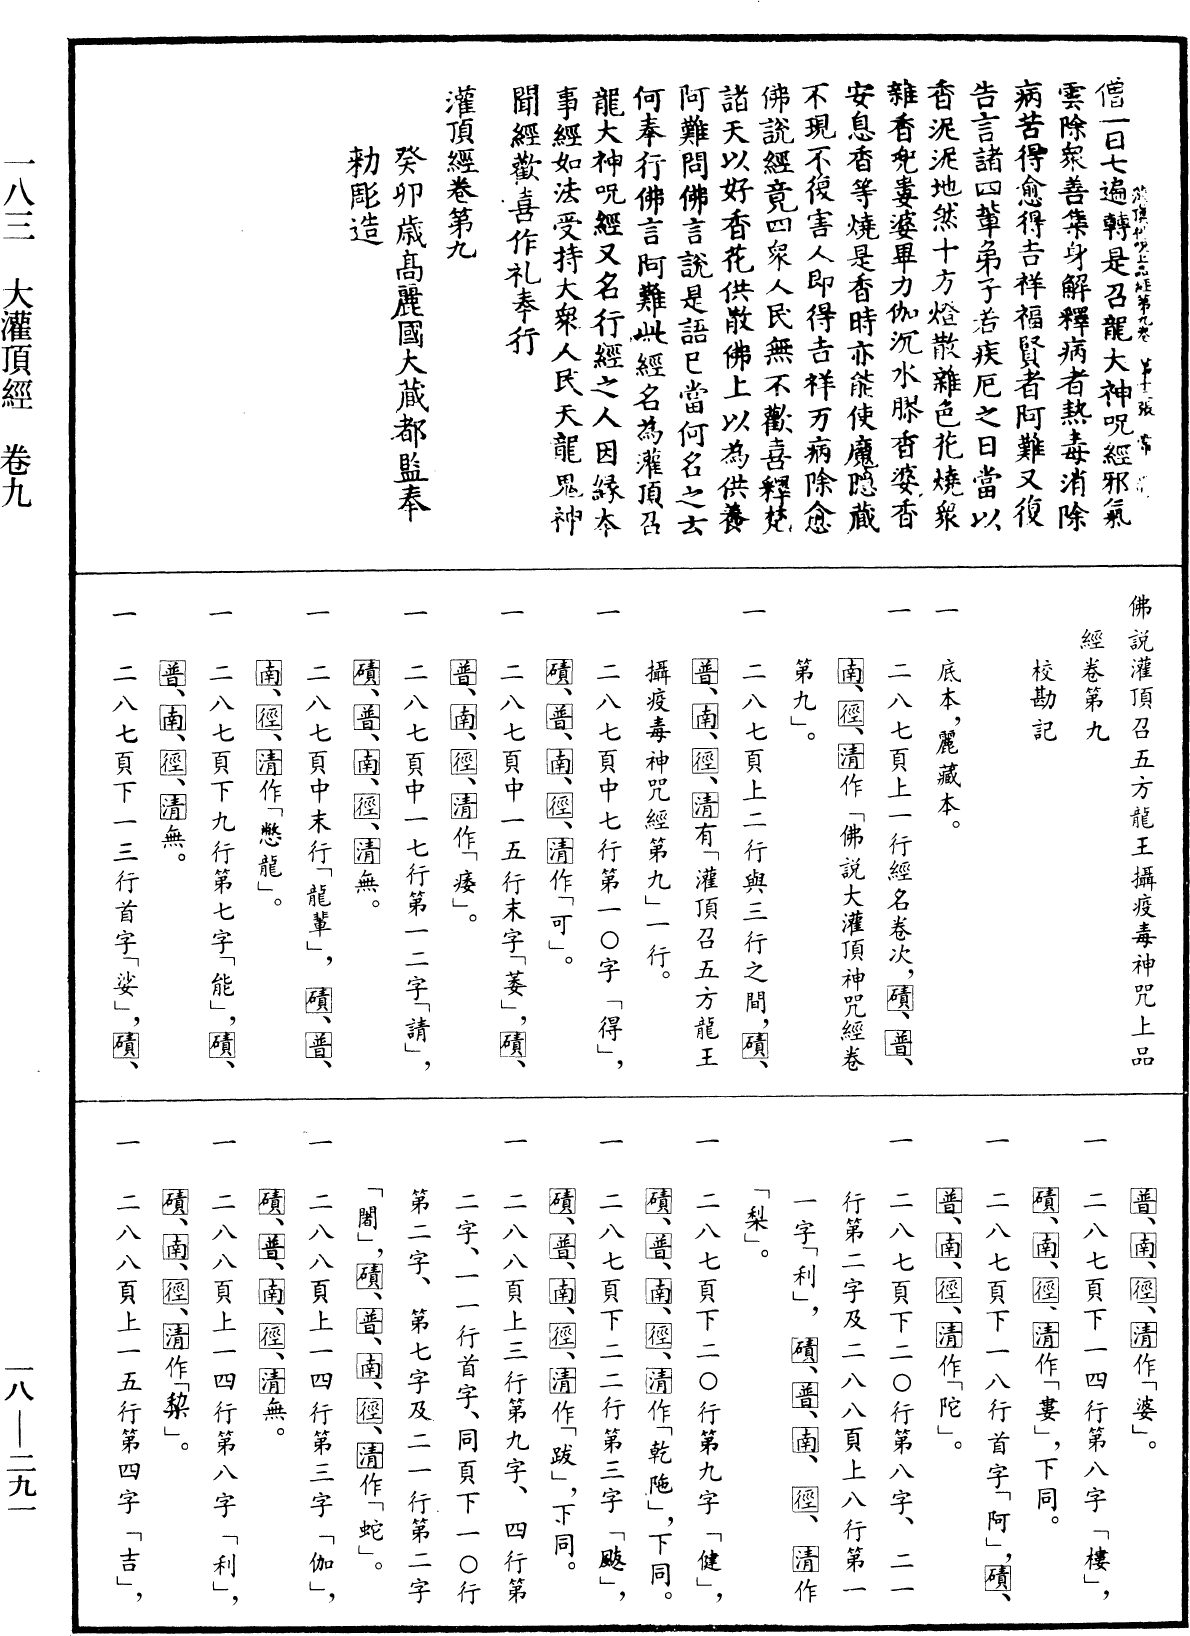 僧一日七遍轉是召龍大神呪經邪氣
雲除衆善集身解釋病者熱毒消除
病苦得愈得吉祥福賢者阿難又復
告言諸四輩弟子若疾厄之日當以
香泥泥地然十方燈散雜色花燒衆
雜香兜婁婆畢力伽沉水膠香婆香
安息香等燒是香時亦能使魔隱藏
不現不復害人即得吉祥万病除愈
佛說經竟四衆人民無不歡喜釋梵
諸天以好香花供散佛上以為供養
阿難問佛言說是語已當何名之云
何奉行佛言阿難此經名為灌頂召
龍大神呪經又名行經之人因緣本
事經如法受持大衆人民天龍鬼神
聞經歡喜作礼奉行
灌頂經卷第九
癸卯歲高麗國大藏都監奉
勅彫造
佛說灌頂召五方龍王攝疫毒神咒上品
經卷第九
校勘記
一 底本，麗藏本。
一 二八七頁上一行經名卷次，磧、普、
南、徑、清作「佛說大灌頂神咒經卷
第九」。
一 二八七頁上二行與三行之間，磧、
普、南、徑、清有「灌頂召五方龍王
攝疫毒神咒經第九」一行。
一 二八七頁中七行第一〇字「得」，
磧、普、南、徑、清作「可」。
一 二八七頁中一五行末字「萎」，磧、
普、南、徑、清作「痿」。
一 二八七頁中一七行第一二字「請」，
磧、普、南、徑、清無。
一 二八七頁中末行「龍輩」，磧、普、
南、徑、清作「憋龍」。
一 二八七頁下九行第七字「能」，磧、
普、南、徑、清無。
一 二八七頁下一三行首字「娑」，磧、
普、南、徑、清作「婆」。
一 二八七頁下一四行第八字「樓」，
磧、南、徑、清作「婁」，下同。
一 二八七頁下一八行首字「阿」，磧、
普、南、徑、清作「陀」。
一 二八七頁下二〇行第八字、二一
行第二字及二八八頁上八行第一
一字「利」，磧、普、南、徑、清作
「梨」。
一 二八七頁下二〇行第九字「健」，
磧、普、南、徑、清作「乾陁」，下同。
一 二八七頁下二二行第三字「颰」，
磧、普、南、徑、清作「跋」，下同。
一 二八八頁上三行第九字、四行第
二字、一一行首字、同頁下一〇行
第二字、第七字及二一行第二字
「闍」，磧、普、南、徑、清作「蛇」。
一 二八八頁上一四行第三字「伽」，
磧、普、南、徑、清無。
一 二八八頁上一四行第八字「利」，
磧、南、徑、清作「棃」。
一 二八八頁上一五行第四字「吉」，
一八三 大灌頂經 卷九
一八—二九一